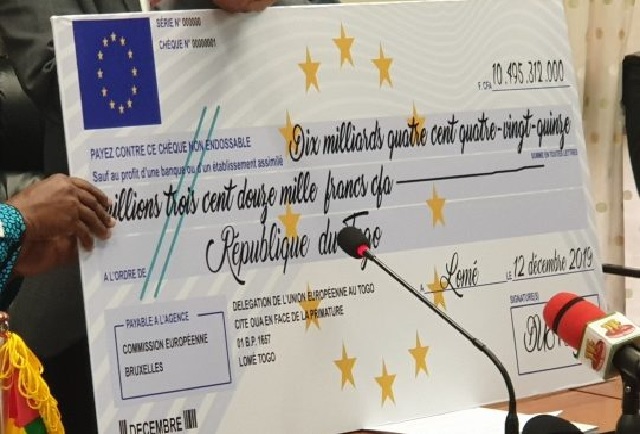 SÉRIE N° 000000
CHÈQUE N° 00000001
F. CFA 10.495.312.000
PAYEZ CONTRE CE CHÈQUE NON ENDOSSABLE
Sauf au profit d'une banque ou d'un établissement assimilé
Dix milliards quatre cent quatre-vingt-quinze
SOMME EN TOUTES LETTRES
millions trois cent douze mille francs cfa
À L'ORDRE DE
République du Togo
À Lomé LE 12 décembre 2019
PAYABLE À L'AGENCE
COMMISSION EUROPÉENNE
BRUXELLES
DELEGATION DE L'UNION EUROPÉENNE AU TOGO
CITE OUA EN FACE DE LA PRIMATURE
01 B.P. 1657
LOMÉ TOGO
SIGNATURE(S)
DECEMBRE